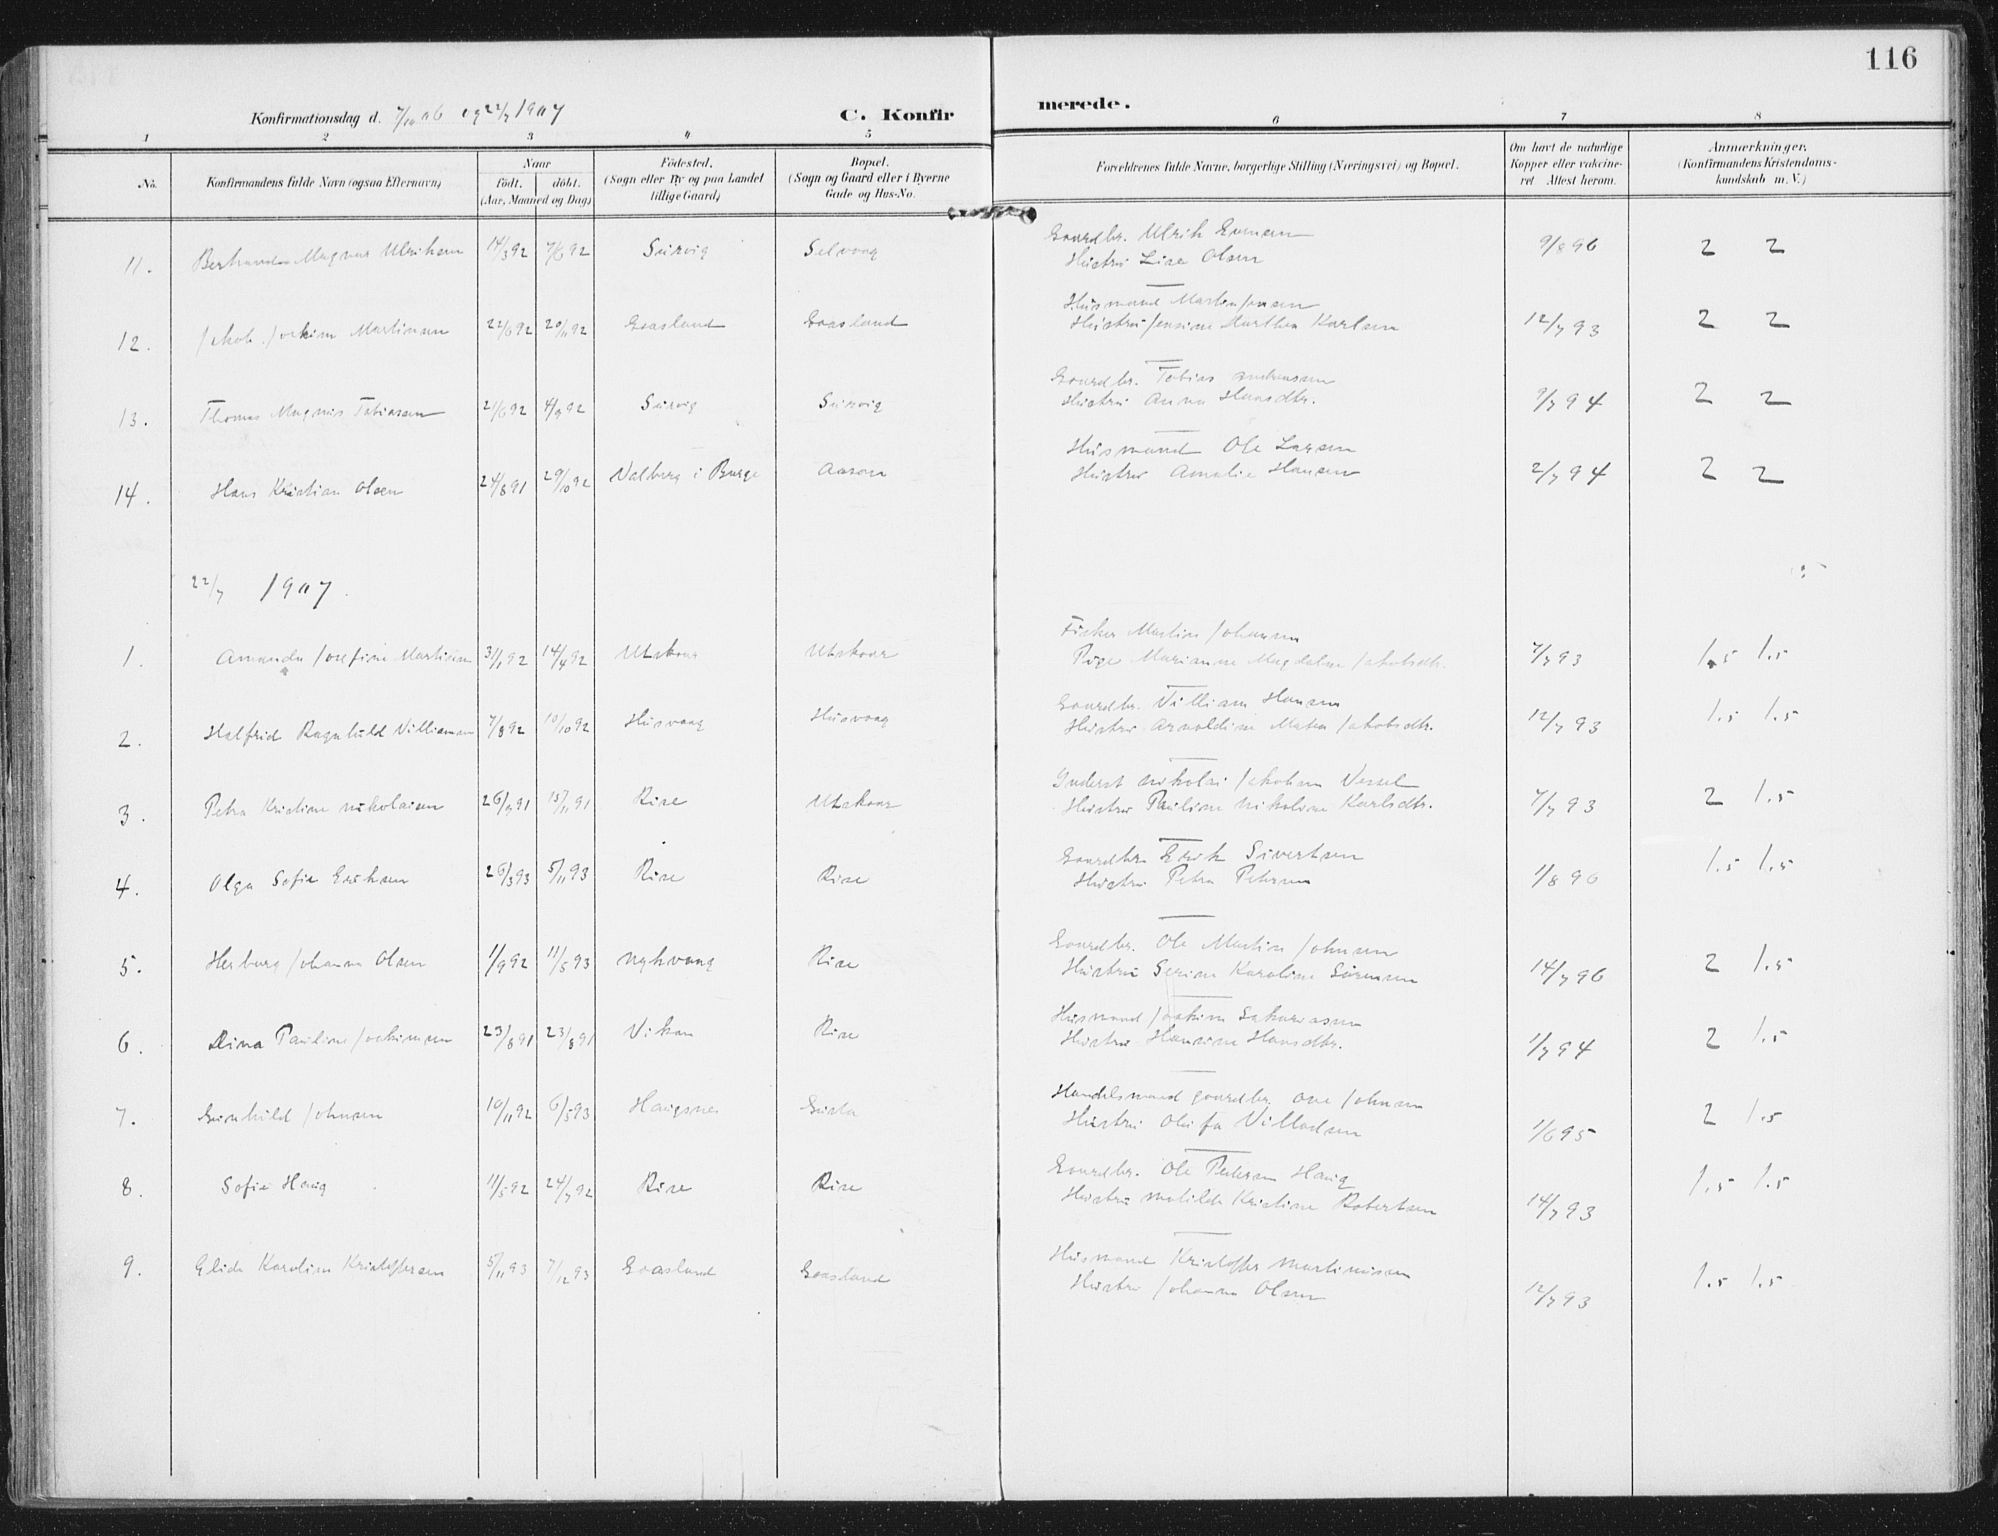 116
Konfirmationsdag d. 7/10 06 og 22/7 1907 C. Konfirmerede.
1 2 3 4 5 6 7 8
No. Konfirmandens fulde Navn (ogsaa Efternavn) Naar født. døbt. (Aar, Maaned og Dag) Fødested. (Sogn eller By og paa Landet tillige Gaard) Bopæl. (Sogn og Gaard eller i Byerne Gade og Hus-No. Forældrenes fulde Navne, borgerlige Stilling (Næringsvei) og Bopæl. Om havt de naturlige Kopper eller vaccineret Attest herom. Anmærkninger. (Konfirmandens Kristendomskundskab m. V.)
11. Magnus Ulriksen 14/3 92 7/6 92 Sürvig Selvaag Gaardbr. Ulrik
Hüstrü Lise Olsen 9/8 96 2 2
12. Jakob Joakim Martinsen 22/6 92 20/11 92 Gaasland Gaasland Hüsmand Martin Jensen
Hüstrü Jensine Marthea Karlsen 12/7 93 2 2
13. Thomas Magnus Tobiasen 21/6 92 4/9 92 Sürvig Sürvig Gaardbr. Tobias Andreassen
Hüstrü Anna Hansdtr. 9/7 94 2 2
14. Hans Kristian Olsen 24/8 91 29/10 92 Valberg i Burge Aason Hüsmand Ole Larsen
Hüstrü Amalie Hansen 2/7 94 2 2
22/7 1907.
1. Amanda Josefine Martinsen 31/1 92 14/4 92 Utskaar Utskaar Fisker Martin Johansen
Pige Marianne Magdalene Jakobsdtr. 7/7 93 1.5 1.5
2. Halfrid Ragnhild Villiamsen 7/8 92 10/10 92 Hüsvaag Hüsvaag Gaardbr. Villiam Hansen
Hüstrü Arnoldine Matea Jakobsdtr. 12/7 93 1.5 1.5
3. Petra Kristine Nikolaisen 26/9 91 15/11 91 Rise Utskaar Inderst Nikolai Jakobsen Vessel
Hüstrü Pauline Nikoline Karlsdtr. 7/7 93 2 1.5
4. Olga Sofie Eriksen 26/3 93 5/11 93 Rise Rise Gaardbr. Erik Sivertsen
Hüstrü Petra Petersen 1/8 96 1.5 1.5
5. Herborg Johanna Olsen 1/9 92 11/5 93 Nykvaag Rise Gaardbr. Ole Martin Johnsen
Hüstrü Serine Karoline Sörensen 14/7 96 2 1.5
6. Dina Pauline Joakimsen 23/8 91 23/8 91 Vikan Rise Hüsmand Joakim Sakariasen
Hüstrü Hansine Hansdtr. 1/7 94 2 1.5
7. Gunhild Johnsen 10/11 92 6/5 93 Haugsnes Guvta Handelsmand gaardbr. Ove Johnsen
Hüstrü Olufa Villadsen 1/6 95 2 1.5
8. Sofie Haug 11/5 92 24/7 92 Rise Rise Gaardbr. Ole Pedersen Haug
Hüstrü Matilde Kristine Robertsen 14/7 93 1.5 1.5
9. Elida Karoline Kristoffersen 5/11 93 7/12 93 Gaasland Gaasland Hüsmand Kristoffer Martinussen
Hüstrü Johanna Olsen 12/7 93 1.5 1.5